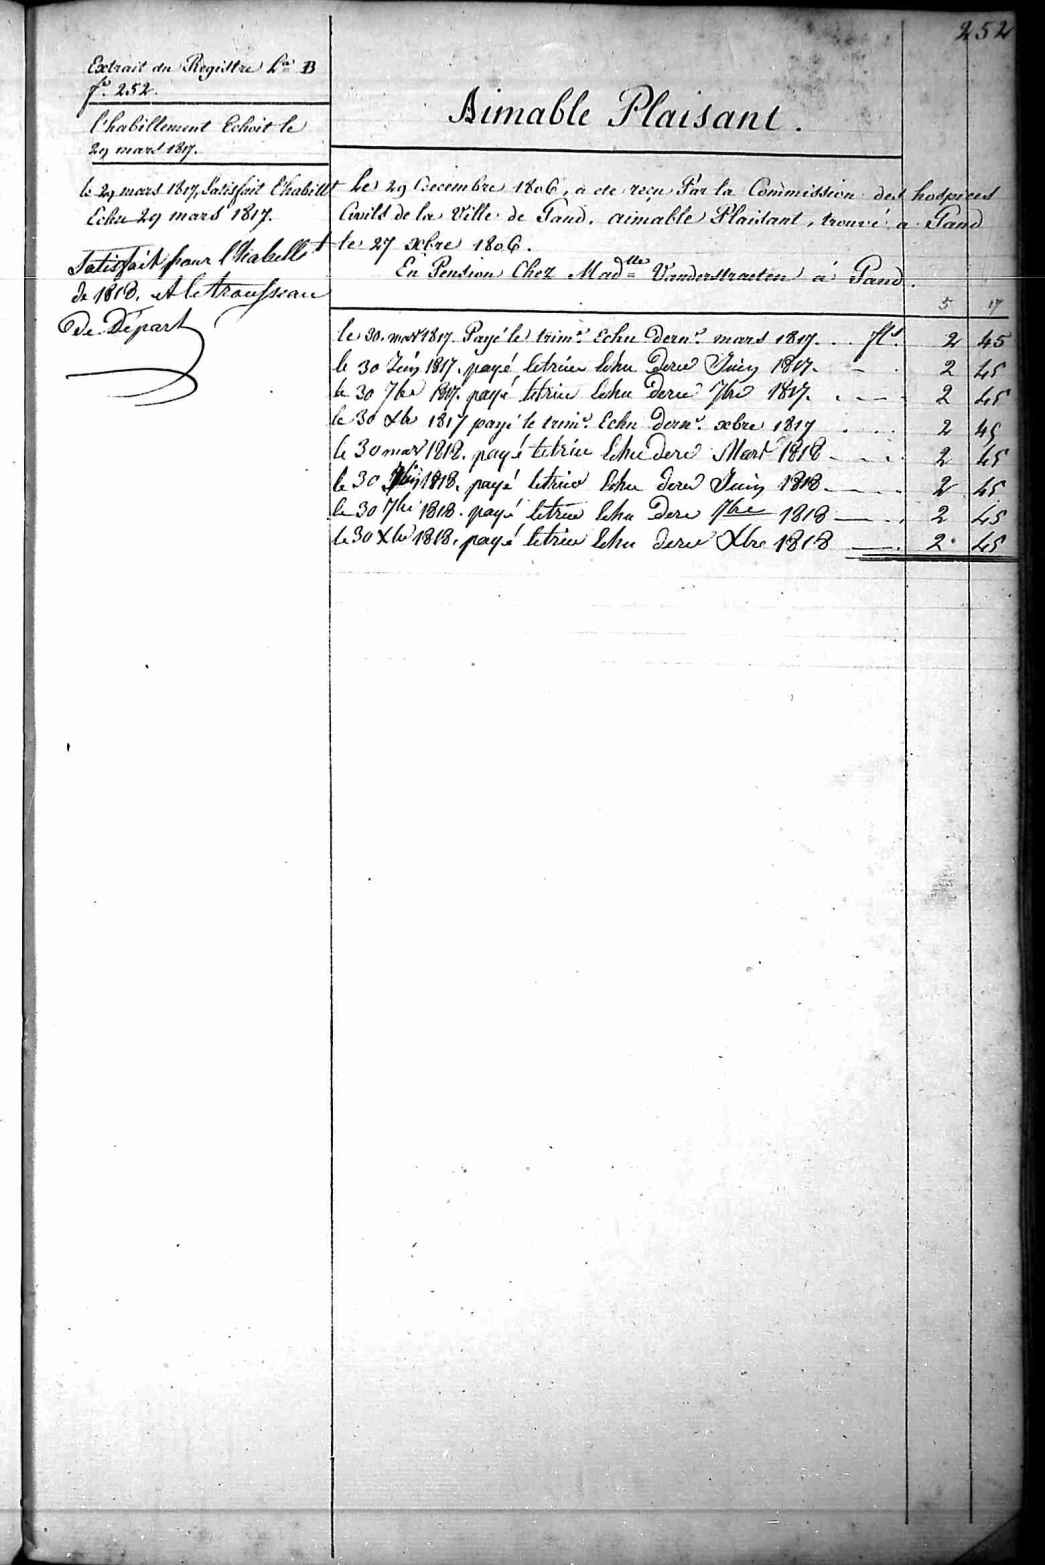 252
Extrait du Registre L.ra B
f.o 252.
l'habillement Echoit le
29 mars 1817.
le 29 mars 1817, Satisfait l'habillt
Echu 29 mars 1817.
Satisfait pour l'habillt
de 1818. et le trousseau
de Départ
Aimable Plaisant.
Le 29 Decembre 1806, a été reçu Par la Commission des hospices
Civils de la Ville de Gand, aimable Plaisant, trouvé a Gand
le 27 xbre 1806.
En Pension Chez Madlle Vanderstraeten á Gand.
5 17
le 30 mars 1817. Payé le trim.e Echu dern.r mars 1817. . . fls. 2 45
le 30 Juin 1817. payé le trim Echu dern Juin 1817. - . 2 45
le 30 7bre 1817. payé le trim Echu dern 7bre 1817. . - - . 2 45
le 30 Xbre 1817 payé le trim.e Echu dern.r xbre 1817 . . . . 2 45
le 30 mars 1818. payé le trim Echu dern Mars 1818 - - . . 2 45
le 30 Juin 1818. payé le trim Echu dern Juin 1818 - - - . 2 45
le 30 7bre 1818. payé le trim Echu dern 7bre 1818 — . . 2 45
le 30 Xbre 1818. payé le trim Echu dern Xbre 1818 — . 2 45